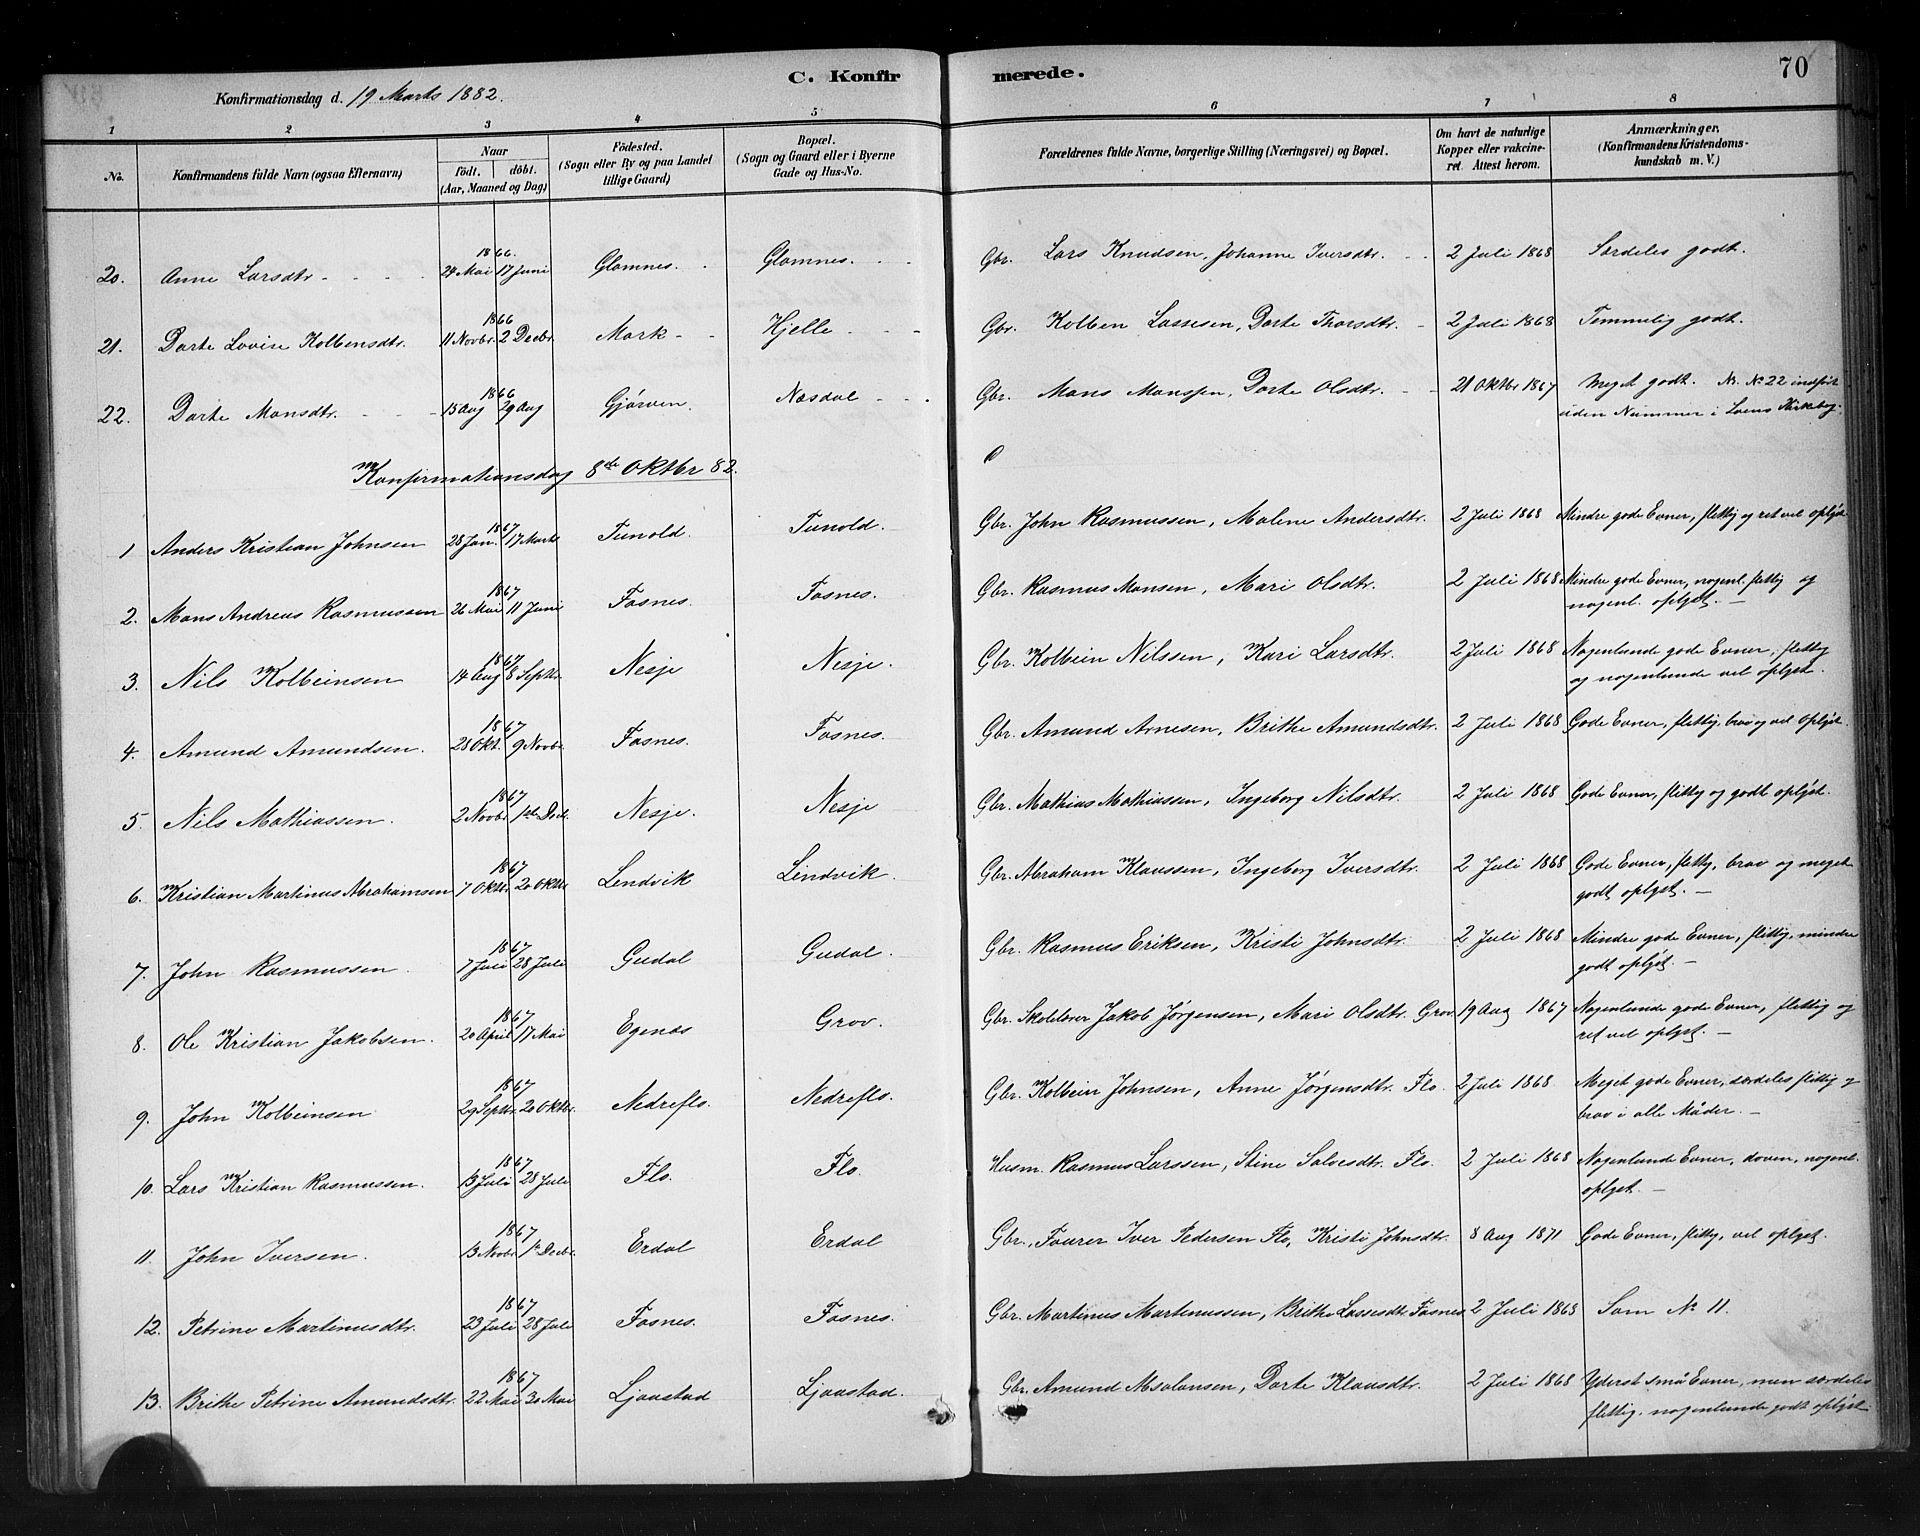 C. Konfirmerede. 70
Konfirmationsdag d. 19 Marts 1882.
1 2 3 4 5 6 7 8
No. Konfirmandens fulde Navn (ogsaa Efternavn) Naar födt. döbt. (Aar, Maaned og Dag) Födested. (Sogn eller By og paa Landet tillige Gaard) Bopæl. (Sogn og Gaard eller i Byerne Gade og Hus-No. Forældrenes fulde Navne, borgerlige Stilling (Næringsvei) og Bopæl. Om havt de naturlige Kopper eller vakcineret. Attest herom. Anmærkninger. (Konfirmandens Kristendomskundskab m. V.)
20. Anne Larsdtr 1866. 24 Mai 17 Juni Glomnes. Glomnes. Gbr. Lars Knudsen, Johanne Iversdtr. 2 Juli 1868 Særdeles godt.
21. Dorte Lovise Kolbensdtr. 1866 11 Novbr. 2 Decbr. Mork Hjelle Gbr. Kolben Lassesen, Dorte Thorsdtr. 2 Juli 1868 Temmelig godt.
22. Dorte Monsdtr. 1866 15 Aug 29 Aug Gjørven Næsdal Gbr. Mons Monssen, Dorte Olsdtr. 21 Oktbr 1867 Meget godt. N. No 22 indført
uden Nummer i Loens Kirkebog.
Konfirmationsdag 8de Oktbr 82.
1 Anders Kristian Johnsen 1867 28 Jan. 17 Marts Tunold. Tunold. Gbr. John Rasmussen, Malene Andersdtr. 2 Juli 1868 Mindre gode Evner, flittig og ret vel oplyst
2. Mons Andreas Rasmussen 1867 26 Mai 11 Juni Fosnes. Fosnes. Gbr. Rasmus Monsen, Mari Olsdtr. 2 Juli 1868 Mindre gode Evner, nogenl. flittig og
nogenl. oplyst. —
3. Nils Kolbeinsen 1867 14 Aug 8 Septbr. Nesje Nesje. Gbr. Kolbein Nilssen, Kari Larsdtr. 2 Juli 1868 Nogenlunde gode Evner, flittig
og nogenlunde vel oplyst.
4. Amund Amundsen. 1867 28 Okt. 9 Novbr. Fosnes. Fosnes. Gbr. Amund Arnesen, Brithe Amundsdtr. 2 Juli 1868 Gode Evner, flittig, brav og vel oplyst.
5. Nils Mathiassen. 1867 2 Novbr 1ste Decb. Nesje. Nesje Gbr. Mathias Mathiassen, Ingeborg Nilsdtr. 2 Juli 1868 Gode Evner, flittig og godt oplyst.
6. Kristian Martinus Abrahamsen 1867 7 Oktbr. 20 Oktbr Lendvik Lendvik. Gbr. Abraham Klaussen, Ingeborg Iversdtr. 2 Juli 1868 Gode Evner, flittig, brav og meget
godt oplyst. —
7. John Rasmussen 1867 7 Juli 28 Juli Gudal Gudal. Gbr. Rasmus Eriksen, Kristi Johnsdtr. 2 Juli 1868 Mindre gode Evner, flittig, mindre
godt oplyst. —
8. Ole Kristian Jakobsen. 1867 20 April 17 Mai Egenæs Grov. Gbr. Skolelærer Jakob Jørgensen, Mari Olsdtr. Grov. 19 Aug 1867 Nogenlunde gode Evner, flittig og
ret vel oplyst. —
9. John Kolbeinsen 1867 29 Septbr. 20 Oktbr. Nedreflo. Nedreflo. Gbr. Kolbein Johnsen, Anne Jørgensdtr. Flo. 2 Juli 1868 Meget gode Evner, særdeles flittig og
brav i alle Måder. —
10. Lars Kristian Rasmussen. 1867 13 Juli 28 Juli Flo. Flo. Husm. Rasmus Larssen, Stine Salvesdtr. Flo. 2 Juli 1868 Nogenlunde Evner, doven, nogenl.
oplyst. —
11. John Iversen. 1867 13 Novbr 1ste Decbr. Erdal Erdal Gbr., Fourer Iver Pedersen Flo, Kristi Johnsdtr. 8 Aug 1871 Gode Evner, flittig, vel oplyst.
12. Petrine Martinusdtr. 1867 23 Juli 28 Juli Fosnes. Fosnes. Gbr. Martinus Martinussen, Brithe Lassesdtr Fosnes 2 Juli 1868 Som No 11.
13. Brithe Petrine Amundsdtr. 1867 22 Mai 30 Mai Ljosstad Ljosstad. Gbr. Amund Absalonsen, Dorte Klausdtr. 2 Juli 1868 Yderst små Evner, men særdeles
flittig, nogenlunde godt oplyst.